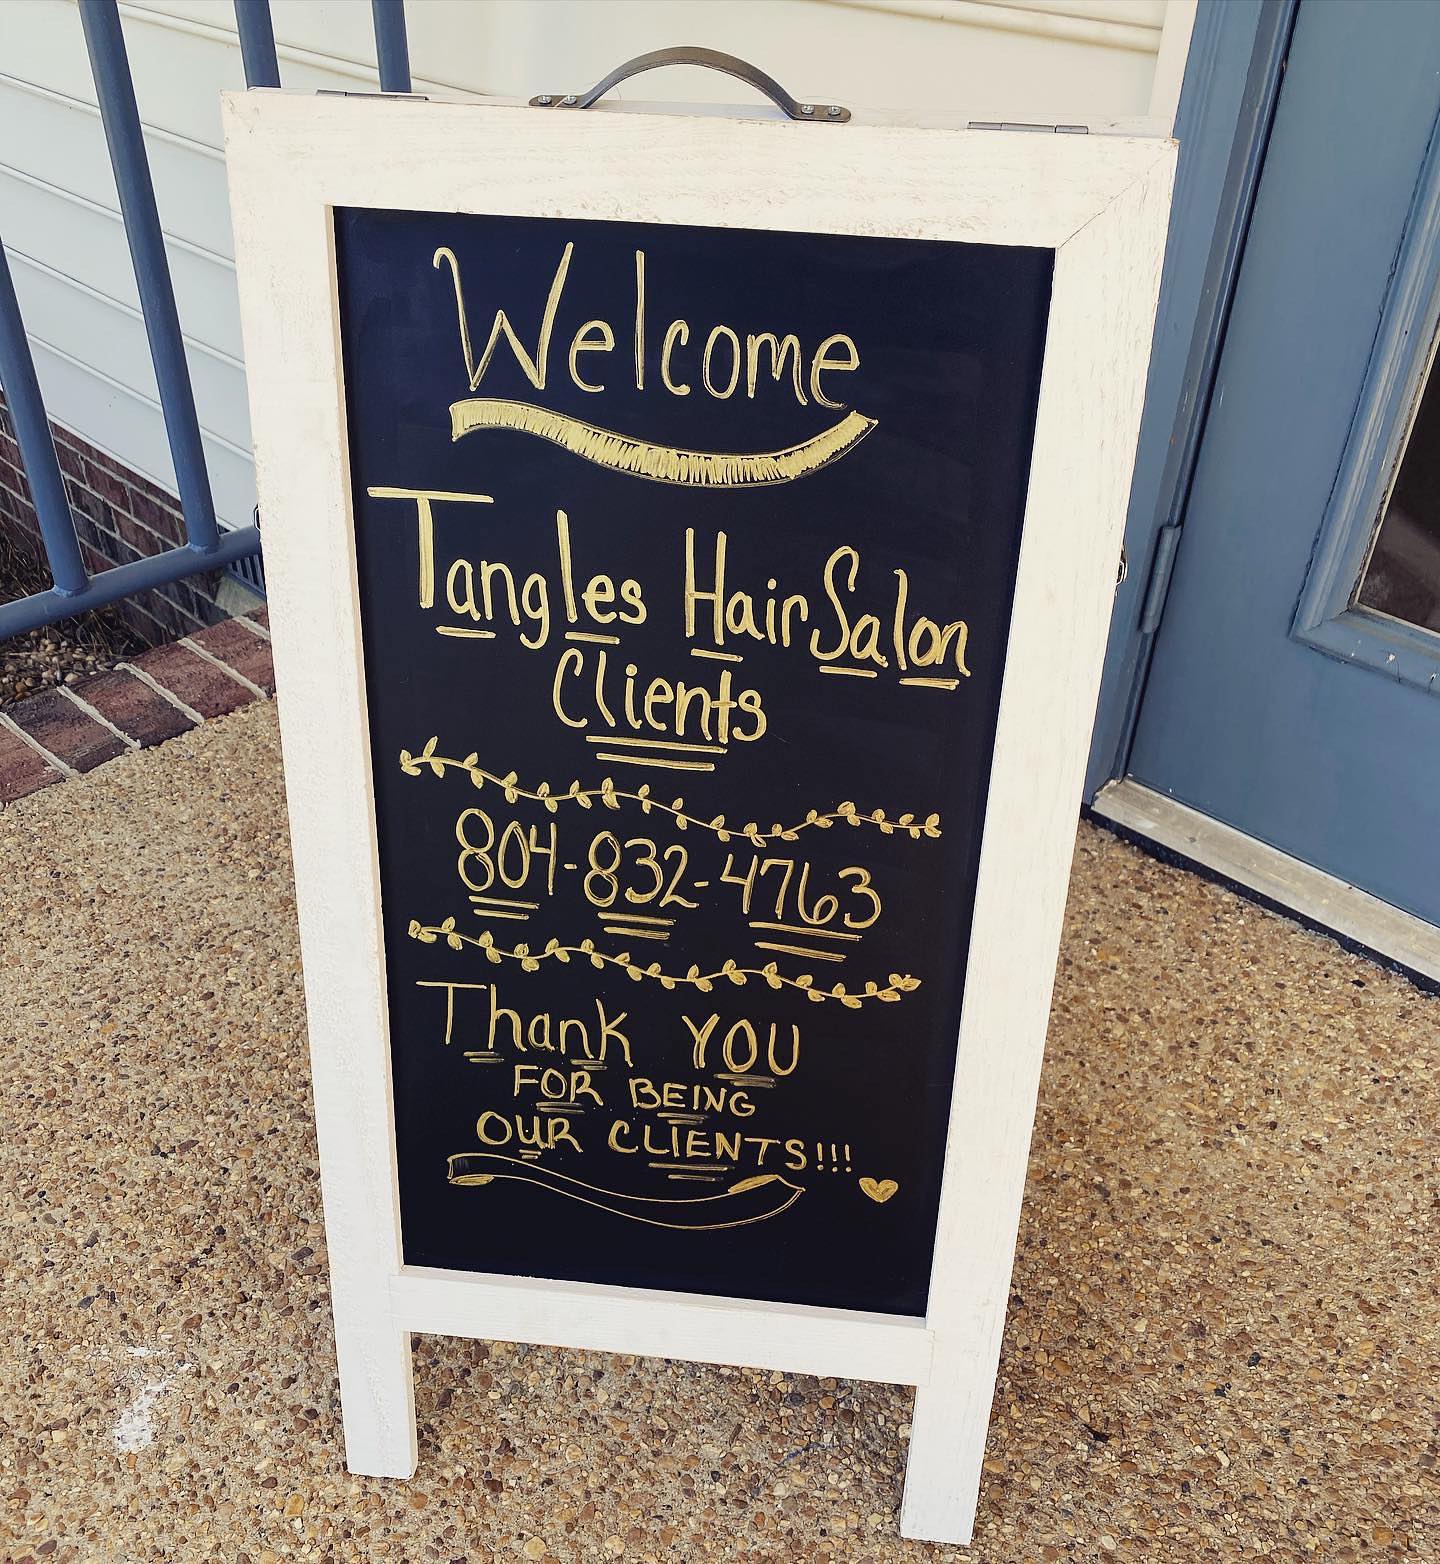 Welcome
Tangles Hair Salon
Clients
804-832-4763
Thank YOU
FOR BEING
OUR CLIENTS!!!